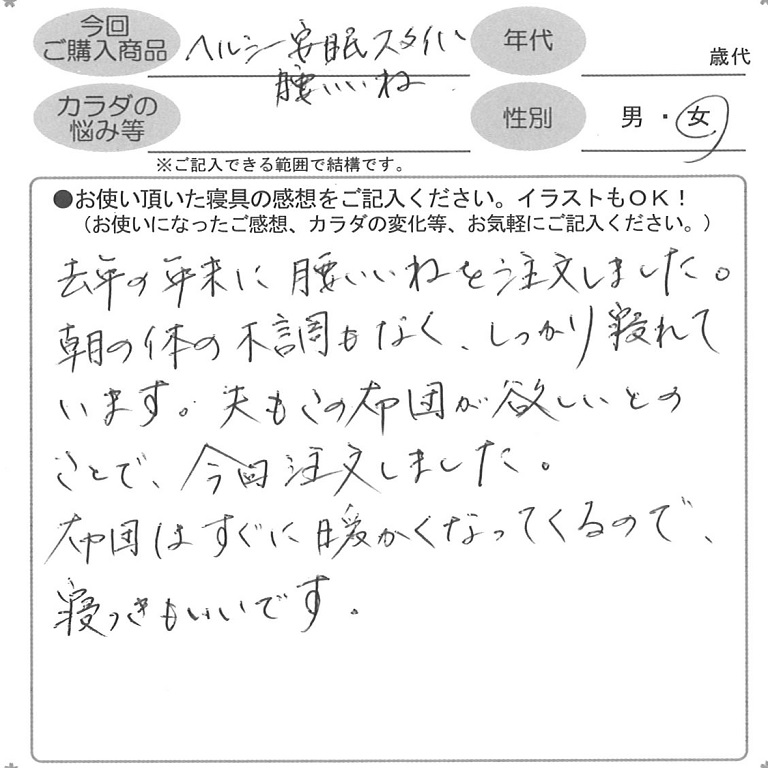 今回
ご購入商品
ヘルシー安眠スタイル
腰いいね
年代
歳代
カラダの
悩み等
性別
男・女
※ご記入できる範囲で結構です。
●お使い頂いた寝具の感想をご記入ください。イラストもOK！
（お使いになったご感想、カラダの変化等、お気軽にご記入ください。）
去年の年末に腰いいねを注文しました。
朝の体の不調もなく、しっかり寝れて
います。夫もこの布団が欲しいとの
ことで、今回注文しました。
布団はすぐに暖かくなってくるので、
寝つきもいいです。